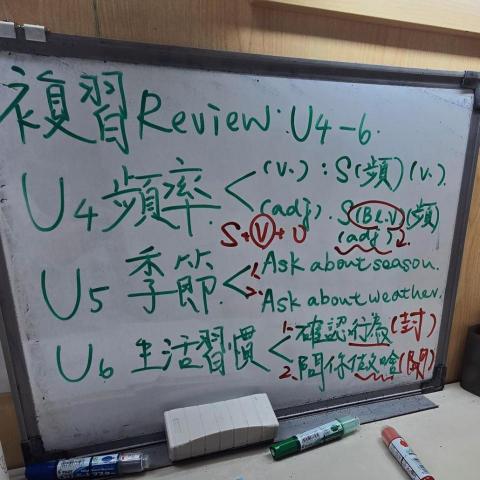 複習Review: U4-6.
U4 頻率 < (v.) : S(頻)(v.).
(adj). S(Be.V)(頻)
S+V+O (adj)2.
U5 季節 < 1. Ask about season.
2. Ask about weather.
U6 生活習慣 < 1. 確認行為(封)
2. 問你做啥(開)